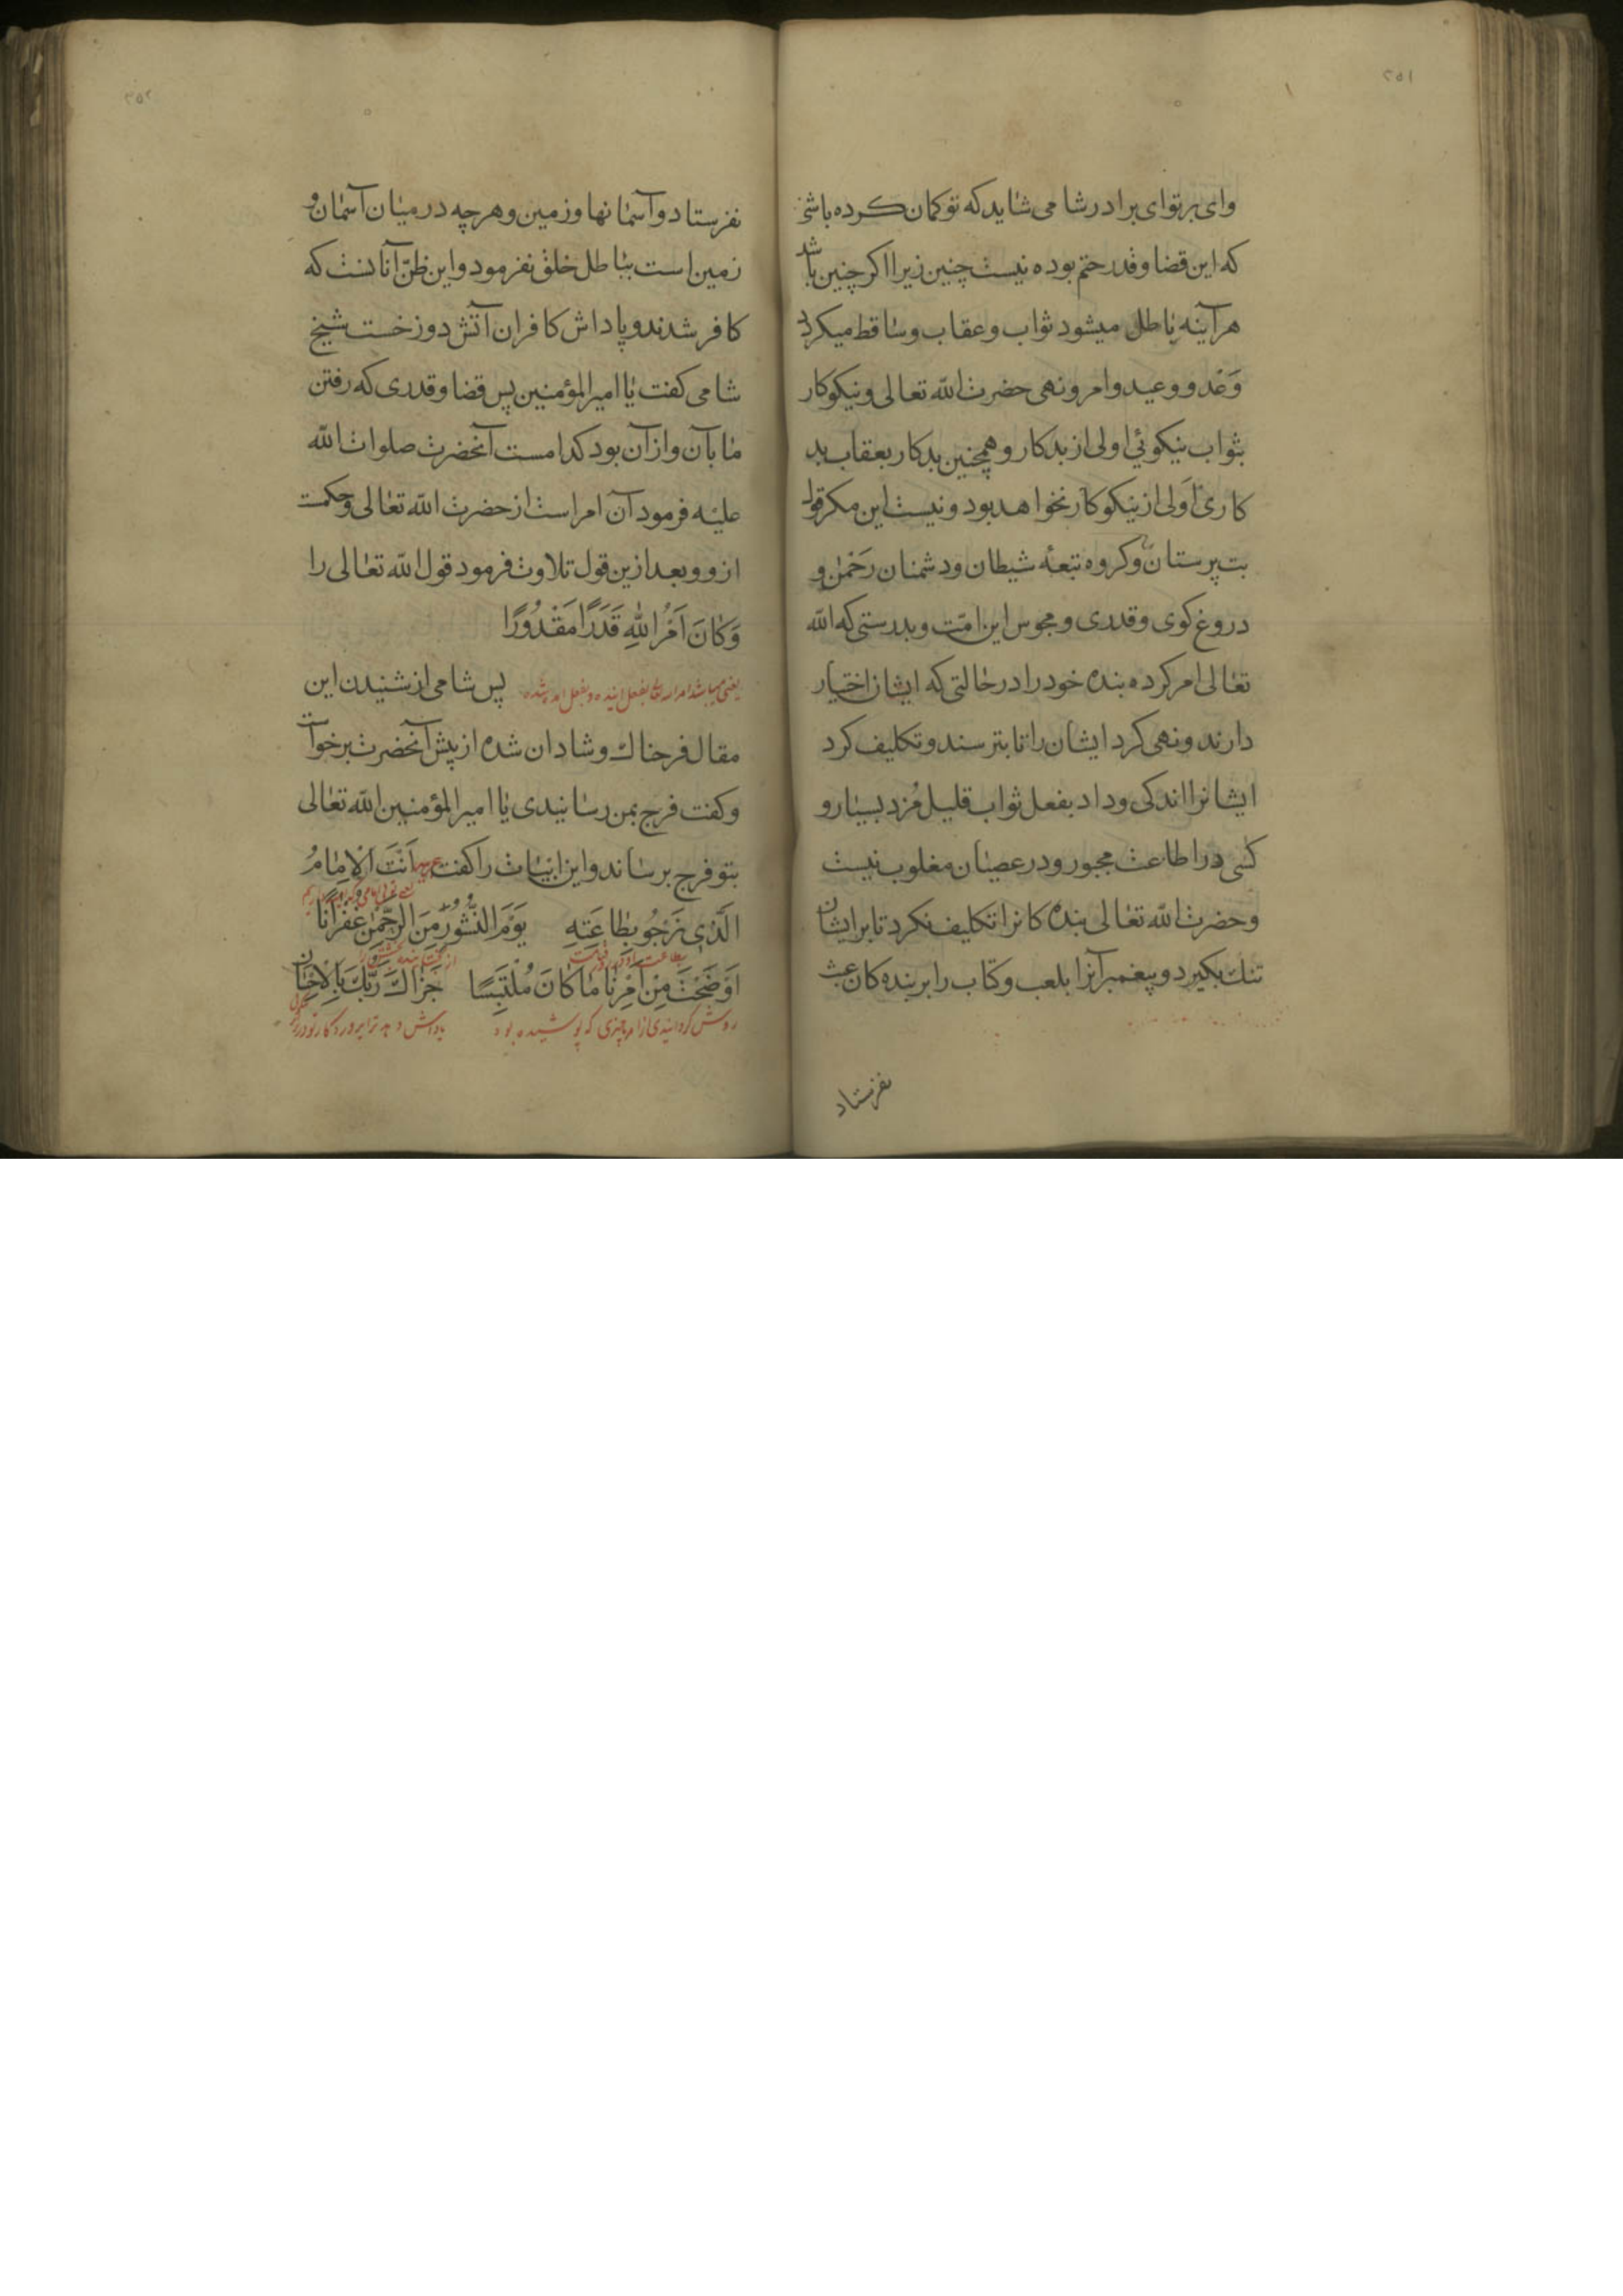 ۲۵۱
وای بر تو ای برادر شامی شاید که تو کمان کرده باشی
که این قضا و قدر حتم بوده نیست چنین زیرا اکر چنین باشد
هر آینه باطل میشود ثواب و عقاب و ساقط میکرد
وَعْد و وعید و امر و نهی حضرت الله تعالی و نیکوکار
بثواب نیکوئی اولی از بدکار و همچنین بدکار بعقاب بد
کاری اَولی از نیکوکار نخواهد بود و نیست این مکر قول
بت پرستان و کروه تبعهٔ شیطان و دشمنان رَحْمٰن و
دروغ کوی و قدری و مجوس این امّت و بدرستی که الله
تعالی امر کرده بندهٔ خود را در حالتی که ایشان اختیار
دارند و نهی کرد ایشان را تا بترسند و تکلیف کرد
ایشانرا اندکی و داد بفعل ثواب قلیل مُزد بسیار و
کسی در اطاعت مجبور و در عصیان مغلوب نیست
و حضرت الله تعالی بنده کانرا تکلیف نکرد تا بر ایشان
تنک بکیرد و پیغمبرآنرا بلعب و کتاب را بر بنده کان عبث
نفرستاد
۲۵۲
نفرستاد و آسمانها و زمین و هر چه در میان آسمان و
زمین است بباطل خلق نفرمود و این ظنّ آنانست که
کافر شدند و پاداش کافران آتش دوزخست شیخ
شامی کفت یا امیر المؤمنین پس قضا و قدری که رفتن
ما بآن و از آن بود کدامست آنحضرت صلوات الله
علیه فرمود آن امر است از حضرت الله تعالی و حکمت
ازو و بعد ازین قول تلاوت فرمود قول الله تعالی را
وَكَانَ اَمْرُ اللهِ قَدَرًا مَقْدُورًا
یعنی میباشد امر الله تعالی بفعل آینده و بفعل آمد شده پس شامی از شنیدن این
مقال فرحناک و شادان شده از پیش آنحضرت برخواست
و کفت فرج بمن رسانیدی یا امیر المؤمنین الله تعالی
بتو فرج برساند و این ابیات را کفت عربیه اَنْتَ الْاِمَامُ
الَّذِی نَرْجُو بِطَاعَتِهِ یَوْمَ النُّشُورِ مِنَ الرَّحْمٰنِ غُفْرَانًا
اَوْضَحْتَ مِنْ اَمْرِنَا مَا كَانَ مُلْتَبِسًا جَزَاكَ رَبُّكَ بِالْاِحْسَانِ
روشن کردانیدی از امر ما چیزی که پوشیده بود پاداش دهد ترا پروردکار تو